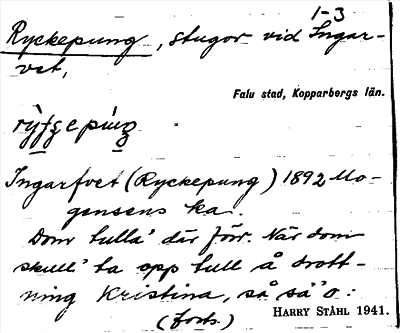 1-3
Ryckepung, stugor vid Ingar-
vet,
Falu stad, Kopparbergs län.
Ingarfvet (Ryckepung) 1892 Mo-
gensens ka.
Dom tulla' där förr. När dom
skull' ta opp tull å drott-
ning Kristina, så sa' o:
(forts.)
HARRY STÅHL 1941.